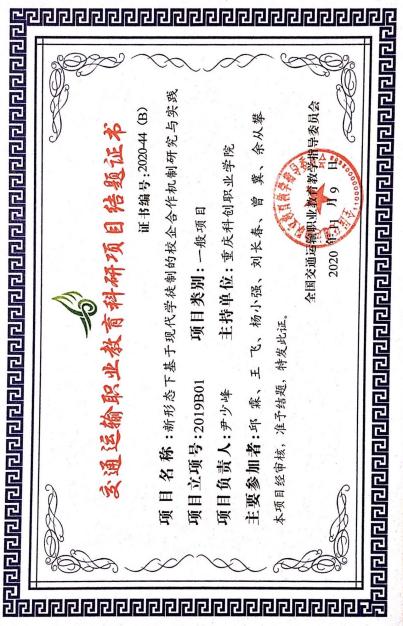 交通运输职业教育科研项目结题证书
证书编号:2020-44 (B)
项目名称:新形态下基于现代学徒制的校企合作机制研究与实践
项目立项号:2019B01 项目类别:一般项目
项目负责人:尹少峰 主持单位:重庆科创职业学院
主要参加者:邱霖、王飞、杨小强、刘长春、曾冀、余从攀
本项目经审核,准予结题,特发此证。
全国交通运输职业教育教学指导委员会
2020 年 11 月 9 日